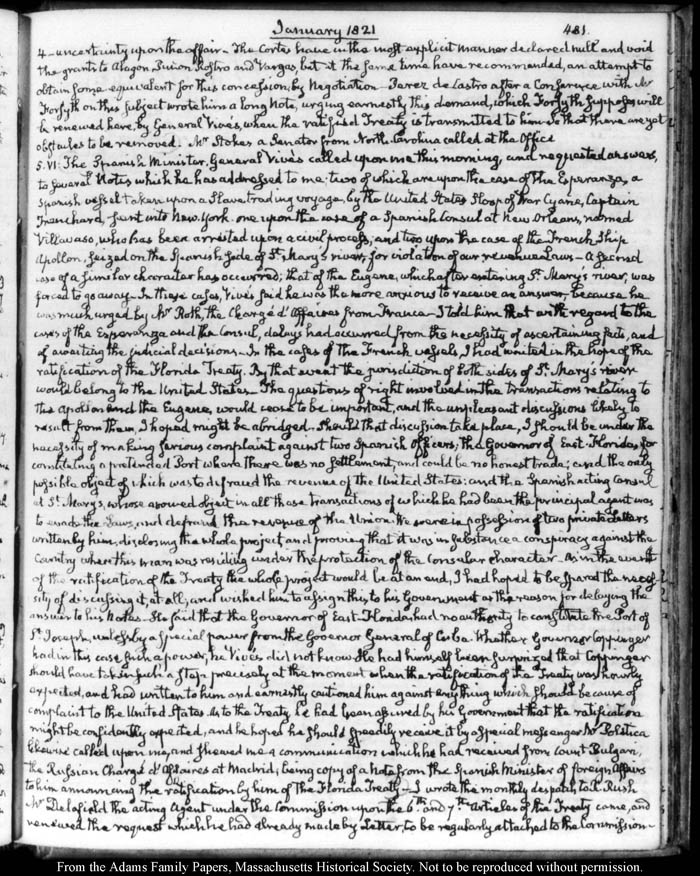 January 1821 481.
4 - uncertainty upon the affair - The Cortes have in the most explicit manner declared null and void
the grants to Alagon, Puñon Rostro and Vargas, but at the same time have recommended, an attempt to
obtain some equivalent for this concession, by Negotiation. Perez de Castro after a Conference with Mr
Forsyth on this subject wrote him a long Note, urging earnestly this demand, which Forsyth supposes will
be renewed here, by General Vivés, when the ratified Treaty is transmitted to him. So that there are yet
obstacles to be removed. Mr Stokes a Senator from North-Carolina called at the Office
5. VI. The Spanish Minister, General Vivés called upon me this morning, and requested answers,
to several Notes which he has addressed to me: two of which are upon the case of the Esperanza, a
Spanish vessel taken upon a Slave trading voyage, by the United States Sloop of War Cyane, Captain
Trenchard, sent into New York. one upon the case of a Spanish Consul at New Orleans, named
Villavaso, who has been arrested upon a civil process; and two upon the case of the French Ship
Apollon, seized on the Spanish side of St. Mary's river, for violation of our revenue Laws - A second
case of a similar character has occurred; that of the Eugene, which after entering St. Mary's river, was
forced to go away - In these cases, Vivés said he was the more anxious to receive an answer, because he
was much urged by Mr Roth, the Chargé d'Affaires from France - I told him that with regard to the
cases of the Esperanza and the Consul, delays had occurred from the necessity of ascertaining facts, and
of awaiting the judicial decisions - In the cases of the French vessels, I had waited in the hope of the
ratification of the Florida Treaty. By that event the jurisdiction of both sides of St. Mary's river
would belong to the United States - The questions of right involved in the transactions relating to
the Apollon and the Eugene, would cease to be important, and the unpleasant discussions likely to
result from them, I hoped might be abridged. Should that discussion take place, I should be under the
necessity of making serious complaint against two Spanish Officers; the Governor of East-Florida, for
constituting a pretended Port where there was no settlement, and could be no honest trade; and the only
possible object of which was to defraud the revenue of the United States: and the Spanish acting Consul
at St. Mary's, whose avowed object in all those transactions of which he had been the principal agent was
to evade the Laws, and defraud the revenue of the Union. We were in possession of two private Letters
written by him, disclosing the whole project and proving that it was in substance a conspiracy against the
Country where this man was residing under the protection of the Consular character. As in the event
of the ratification of the Treaty the whole project would be at an end, I had hoped to be spared the neces-
sity of discussing it, at all, and wished him to assign this to his Government as the reason for delaying the
answer to his Notes. He said that the Governor of East-Florida, had no authority to constitute the Port of
St. Joseph, unless by a special power from the Governor General of Cuba. Whether Governor Coppinger
had in this case such a power, he Vivés did not know. He had himself been surprized that Coppinger
should have taken such a step precisely at the moment when the ratification of the Treaty was hourly
expected, and had written to him and earnestly cautioned him against any thing which should be cause of
complaint to the United States. As to the Treaty he had been assured by his Government that the ratification
might be confidently expected, and he hopes he should speedily receive it by a special messenger. Mr Poletica
likewise called upon me, and shewed me a communication which he had received from Count Bulgari,
the Russian Chargé d'Affaires at Madrid; being copy of a Note from the Spanish Minister of foreign Affairs
to him announcing the ratification by him of the Florida Treaty - I wrote the monthly despatch to R. Rush
Mr Delafield the acting Agent under the Commission upon the 6th. and 7th. Articles of the Treaty came, and
renewed the request which he had already made by Letter, to be regularly attached to the Commission -
From the Adams Family Papers, Massachusetts Historical Society. Not to be reproduced without permission.